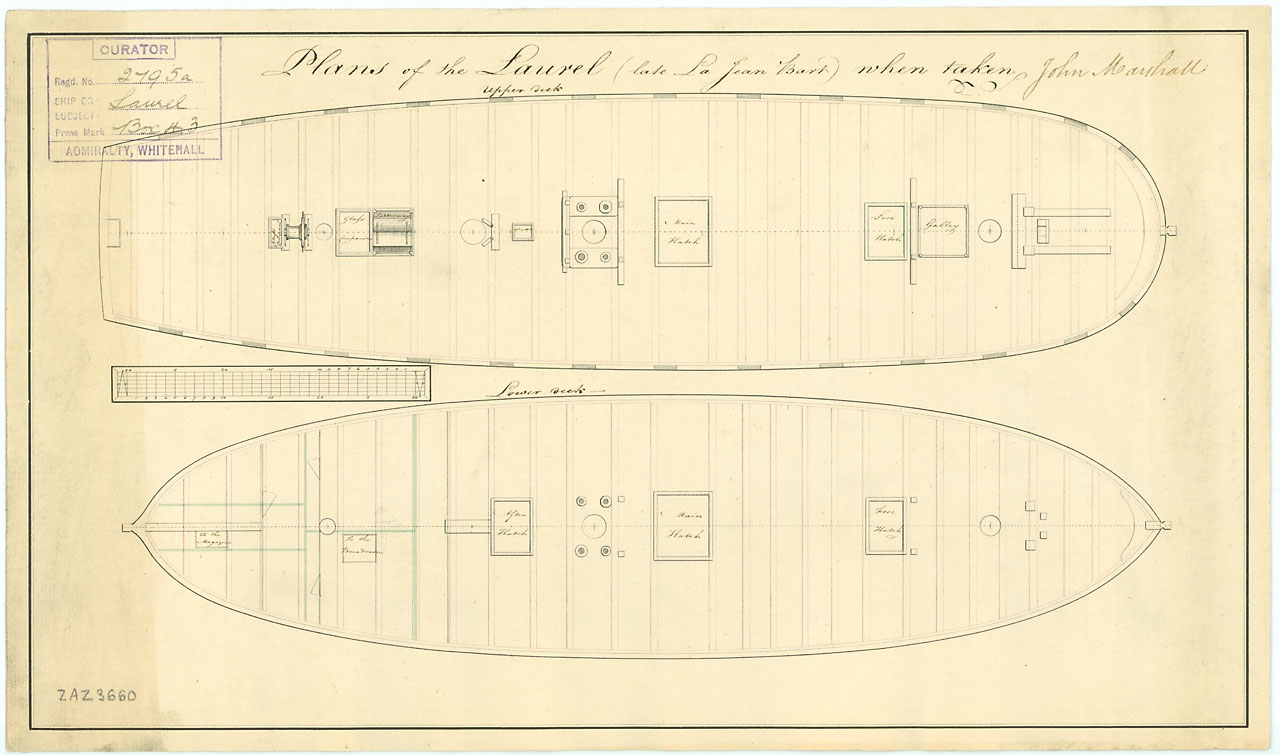 CURATOR
Regd. No. 2795a
SHIP OR Laurel
SUBJECT
Press Mark Box 43
ADMIRALTY, WHITEHALL
Plans of the Laurel (late La Jean Bart) when taken John Marshall
Upper Deck
Glass
Ladderway
Main
Hatch
Fore
Hatch
Galley
Lower Deck
to the
Magazine
to the
Breadroom
After
Hatch
Main
Hatch
Fore
Hatch
ZAZ3660